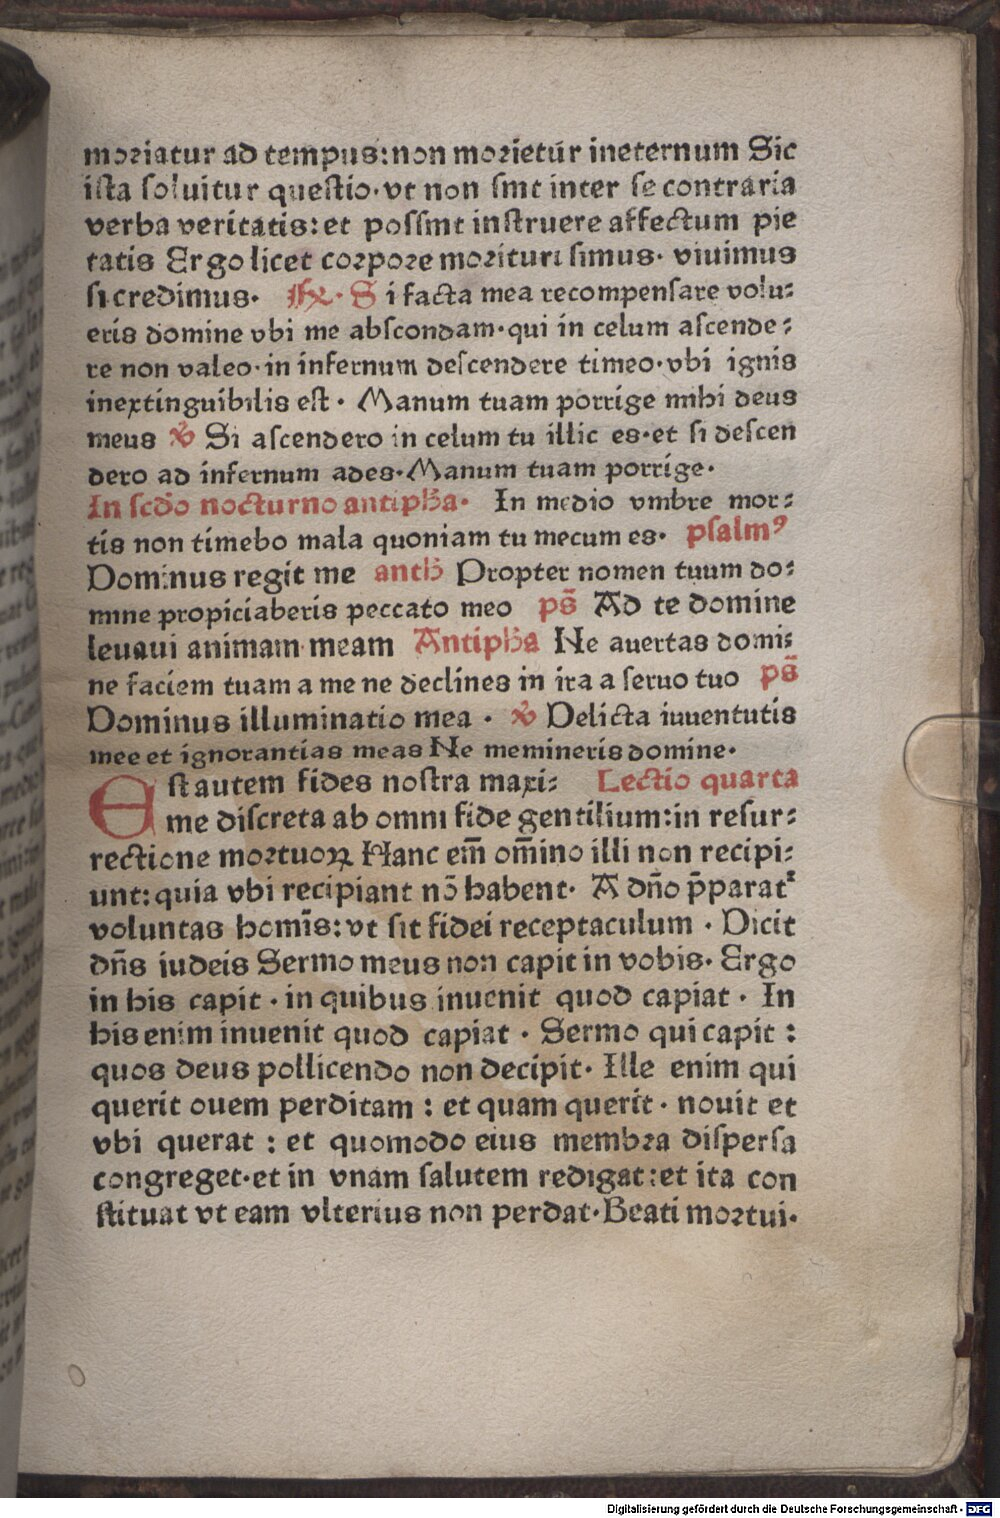 moriatur ad tempus: non morietur ineternum Sic
ista soluitur questio· vt non sint inter se contraria
verba veritatis: et possint instruere affectum pie
tatis Ergo licet corpore morituri simus· viuimus
si credimus· ℟· Si facta mea recompensare volu⸗
eris domine vbi me abscondam· qui in celum ascende⸗
re non valeo· in infernum descendere timeo· vbi ignis
inextinguibilis est· Manum tuam porrige mihi deus
meus ℣ Si ascendero in celum tu illic es· et si descen
dero ad infernum ades· Manum tuam porrige·
In scđo nocturno antiph̄a· In medio vmbre mor⸗
tis non timebo mala quoniam tu mecum es· psalmꝰ
Dominus regit me anth̄ Propter nomen tuum do⸗
mine propiciaberis peccato meo ps̄ Ad te domine
leuaui animam meam Antiph̄a Ne auertas domi⸗
ne faciem tuam a me ne declines in ira a seruo tuo ps̄
Dominus illuminatio mea · ℣ Delicta iuuentutis
mee et ignorantias meas Ne memineris domine·
Est autem fides nostra maxi⸗ Lectio quarta
me discreta ab omni fide gentilium: in resur⸗
rectione mortuoꝝ Hanc em̄ om̄ino illi non recipi⸗
unt: quia vbi recipiant nō habent· A dn̄o p̄parat᷑
voluntas homīs: vt sit fidei receptaculum · Dicit
dn̄s iudeis Sermo meus non capit in vobis· Ergo
in his capit · in quibus inuenit quod capiat · In
his enim inuenit quod capiat · Sermo qui capit :
quos deus pollicendo non decipit· Ille enim qui
querit ouem perditam : et quam querit · nouit et
vbi querat : et quomodo eius membra dispersa
congreget· et in vnam salutem redigat: et ita con
stituat vt eam vlterius non perdat· Beati mortui·
Digitalisierung gefördert durch die Deutsche Forschungsgemeinschaft - DFG